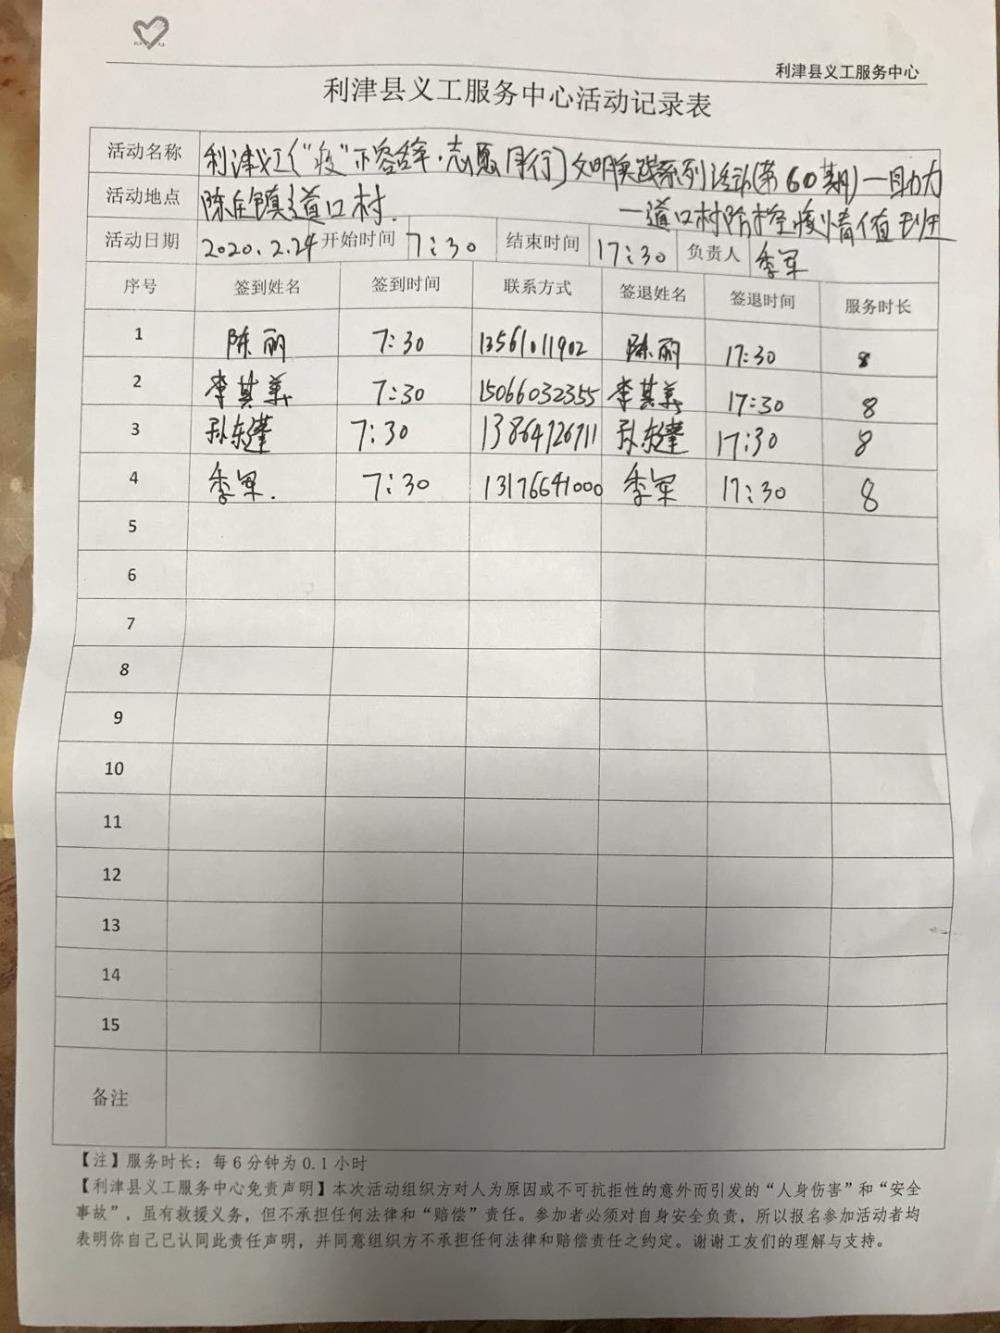 利津县义工服务中心
利津县义工服务中心活动记录表
活动名称 利津义工〔“疫”不容辞·志愿同行〕文明实践系列活动(第60期)—助力
活动地点 陈庄镇道口村. —道口村防控疫情值班
活动日期 2020.2.24 开始时间 7:30 结束时间 17:30 负责人 季军
序号 签到姓名 签到时间 联系方式 签退姓名 签退时间 服务时长
1 陈丽 7:30 13561011902 陈丽 17:30 8
2 李其美 7:30 15066032355 李其美 17:30 8
3 孙东 7:30 13864726711 孙东 17:30 8
4 季军. 7:30 13176641000 季军 17:30 8
5
6
7
8
9
10
11
12
13
14
15
备注
【注】服务时长：每6分钟为0.1小时
【利津县义工服务中心免责声明】本次活动组织方对人为原因或不可抗拒性的意外而引发的“人身伤害”和“安全
事故”，虽有救援义务，但不承担任何法律和“赔偿”责任。参加者必须对自身安全负责，所以报名参加活动者均
表明你自己已认同此责任声明，并同意组织方不承担任何法律和赔偿责任之约定。谢谢工友们的理解与支持。